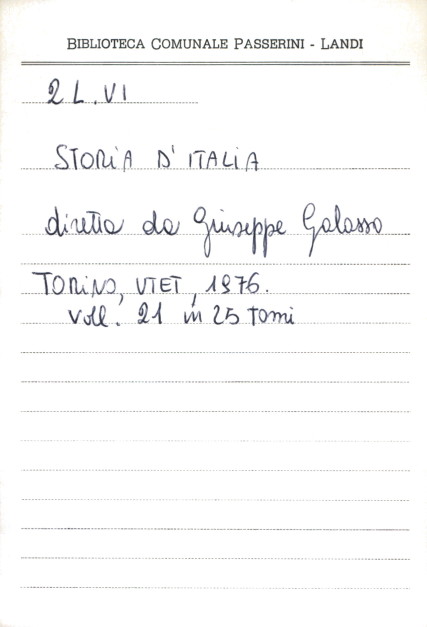 BIBLIOTECA COMUNALE PASSERINI - LANDI
2 L. VI
STORIA D'ITALIA
diretta da Giuseppe Galasso
TORINO, UTET, 1976.
voll. 21 in 25 tomi